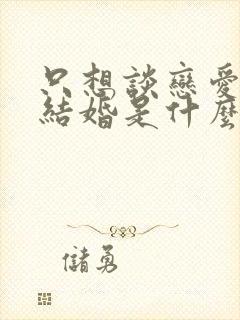 只想談戀愛
結婚是什麼
儲勇